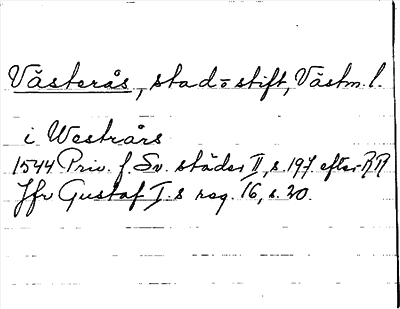 Västerås, stad o stift, Västm. l.
i Westrårs
1544 Priv. f. Sv. städer II, s. 197 efter RR
Jfr Gustaf I:s reg. 16, s. 20.